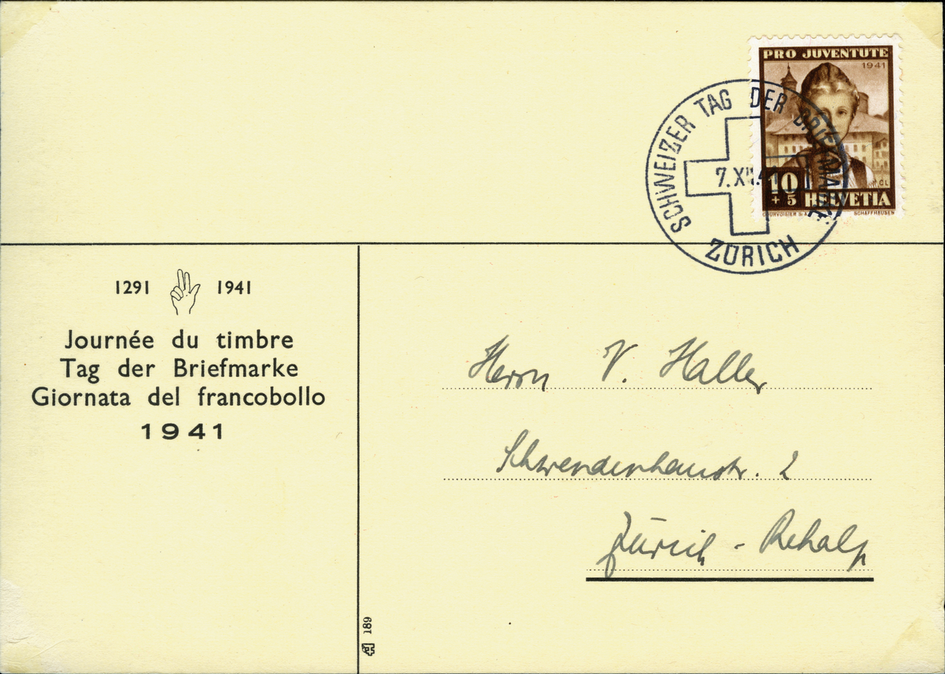 PRO JUVENTUTE
1941
10
+ 5 HELVETIA
COURVOISIER S.A. SCHAFFHAUSEN
SCHWEIZER TAG DER BRIEFMARKE
7.XII.41
ZÜRICH
1291 1941
Journée du timbre
Tag der Briefmarke
Giornata del francobollo
1941
Herrn V. Haller
Schwendenhaustr. 2
Zürich - Rehalp
189